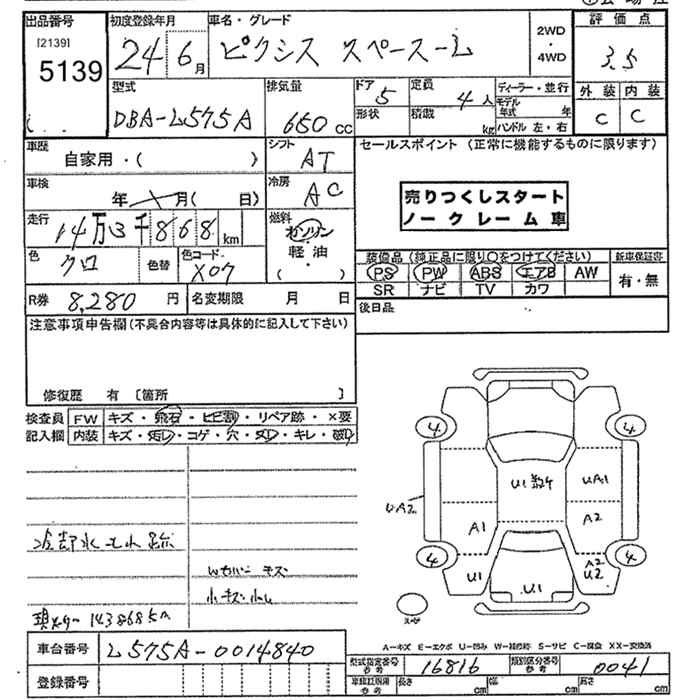 出品番号
[2139]
5139
初度登録年月
24 6月
車名・グレード
ピクシス スペース-L
2WD
・
4WD
評価点
3.5
外装 内装
C C
型式
DBA-L575A
排気量
650 cc
ドア
5
形状
定員
4人
積載
kg
ディーラー・並行
モデル年式 年
ハンドル 左・右
車歴
自家用・( )
シフト
AT
車検
年 月( 日)
冷房
AC
走行
14万3千868km
燃料
ガソリン
・
軽油
( )
色
クロ
色替
色コード
X07
R券 8,280 円
名変期限 月 日
セールスポイント (正常に機能するものに限ります)
売りつくしスタート
ノークレーム車
装備品 (純正品に限り○をつけてください)
PS PW ABS エアB AW
SR ナビ TV カワ
新車保証書
有・無
後日品
注意事項申告欄(不具合内容等は具体的に記入して下さい)
修復歴 有 〔箇所 〕
検査員
記入欄
FW キズ・飛石・ヒビ割・リペア跡・×要
内装 キズ・汚レ・コゲ・穴・スレ・キレ・破レ
冷却水モレ跡
キズ
小キズ
143868km
車台番号 L575A-0014840
登録番号
4 4
U1 数4
UA1
UA2
A1
A2
4 4
U1
U1
A2
U2
スペア
A-キズ E-エクボ U-凹み W-補修跡 S-サビ C-腐食 XX-交換済
型式指定番号
参考
16816
類別区分番号
参考
0041
長さ cm
幅 cm
高さ cm